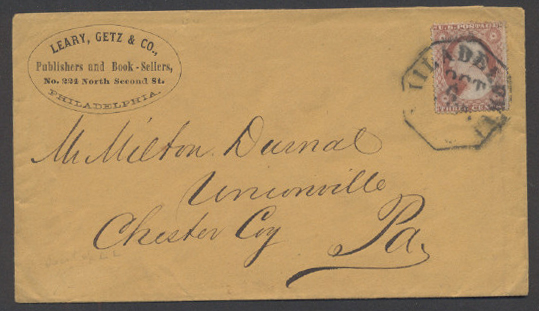 LEARY, GETZ & CO.,
Publishers and Book-Sellers,
No. 224 North Second St.
PHILADELPHIA.
PHILADELPHIA
OCT
Mr Milton Durnal
Unionville
Chester Coy Pa.